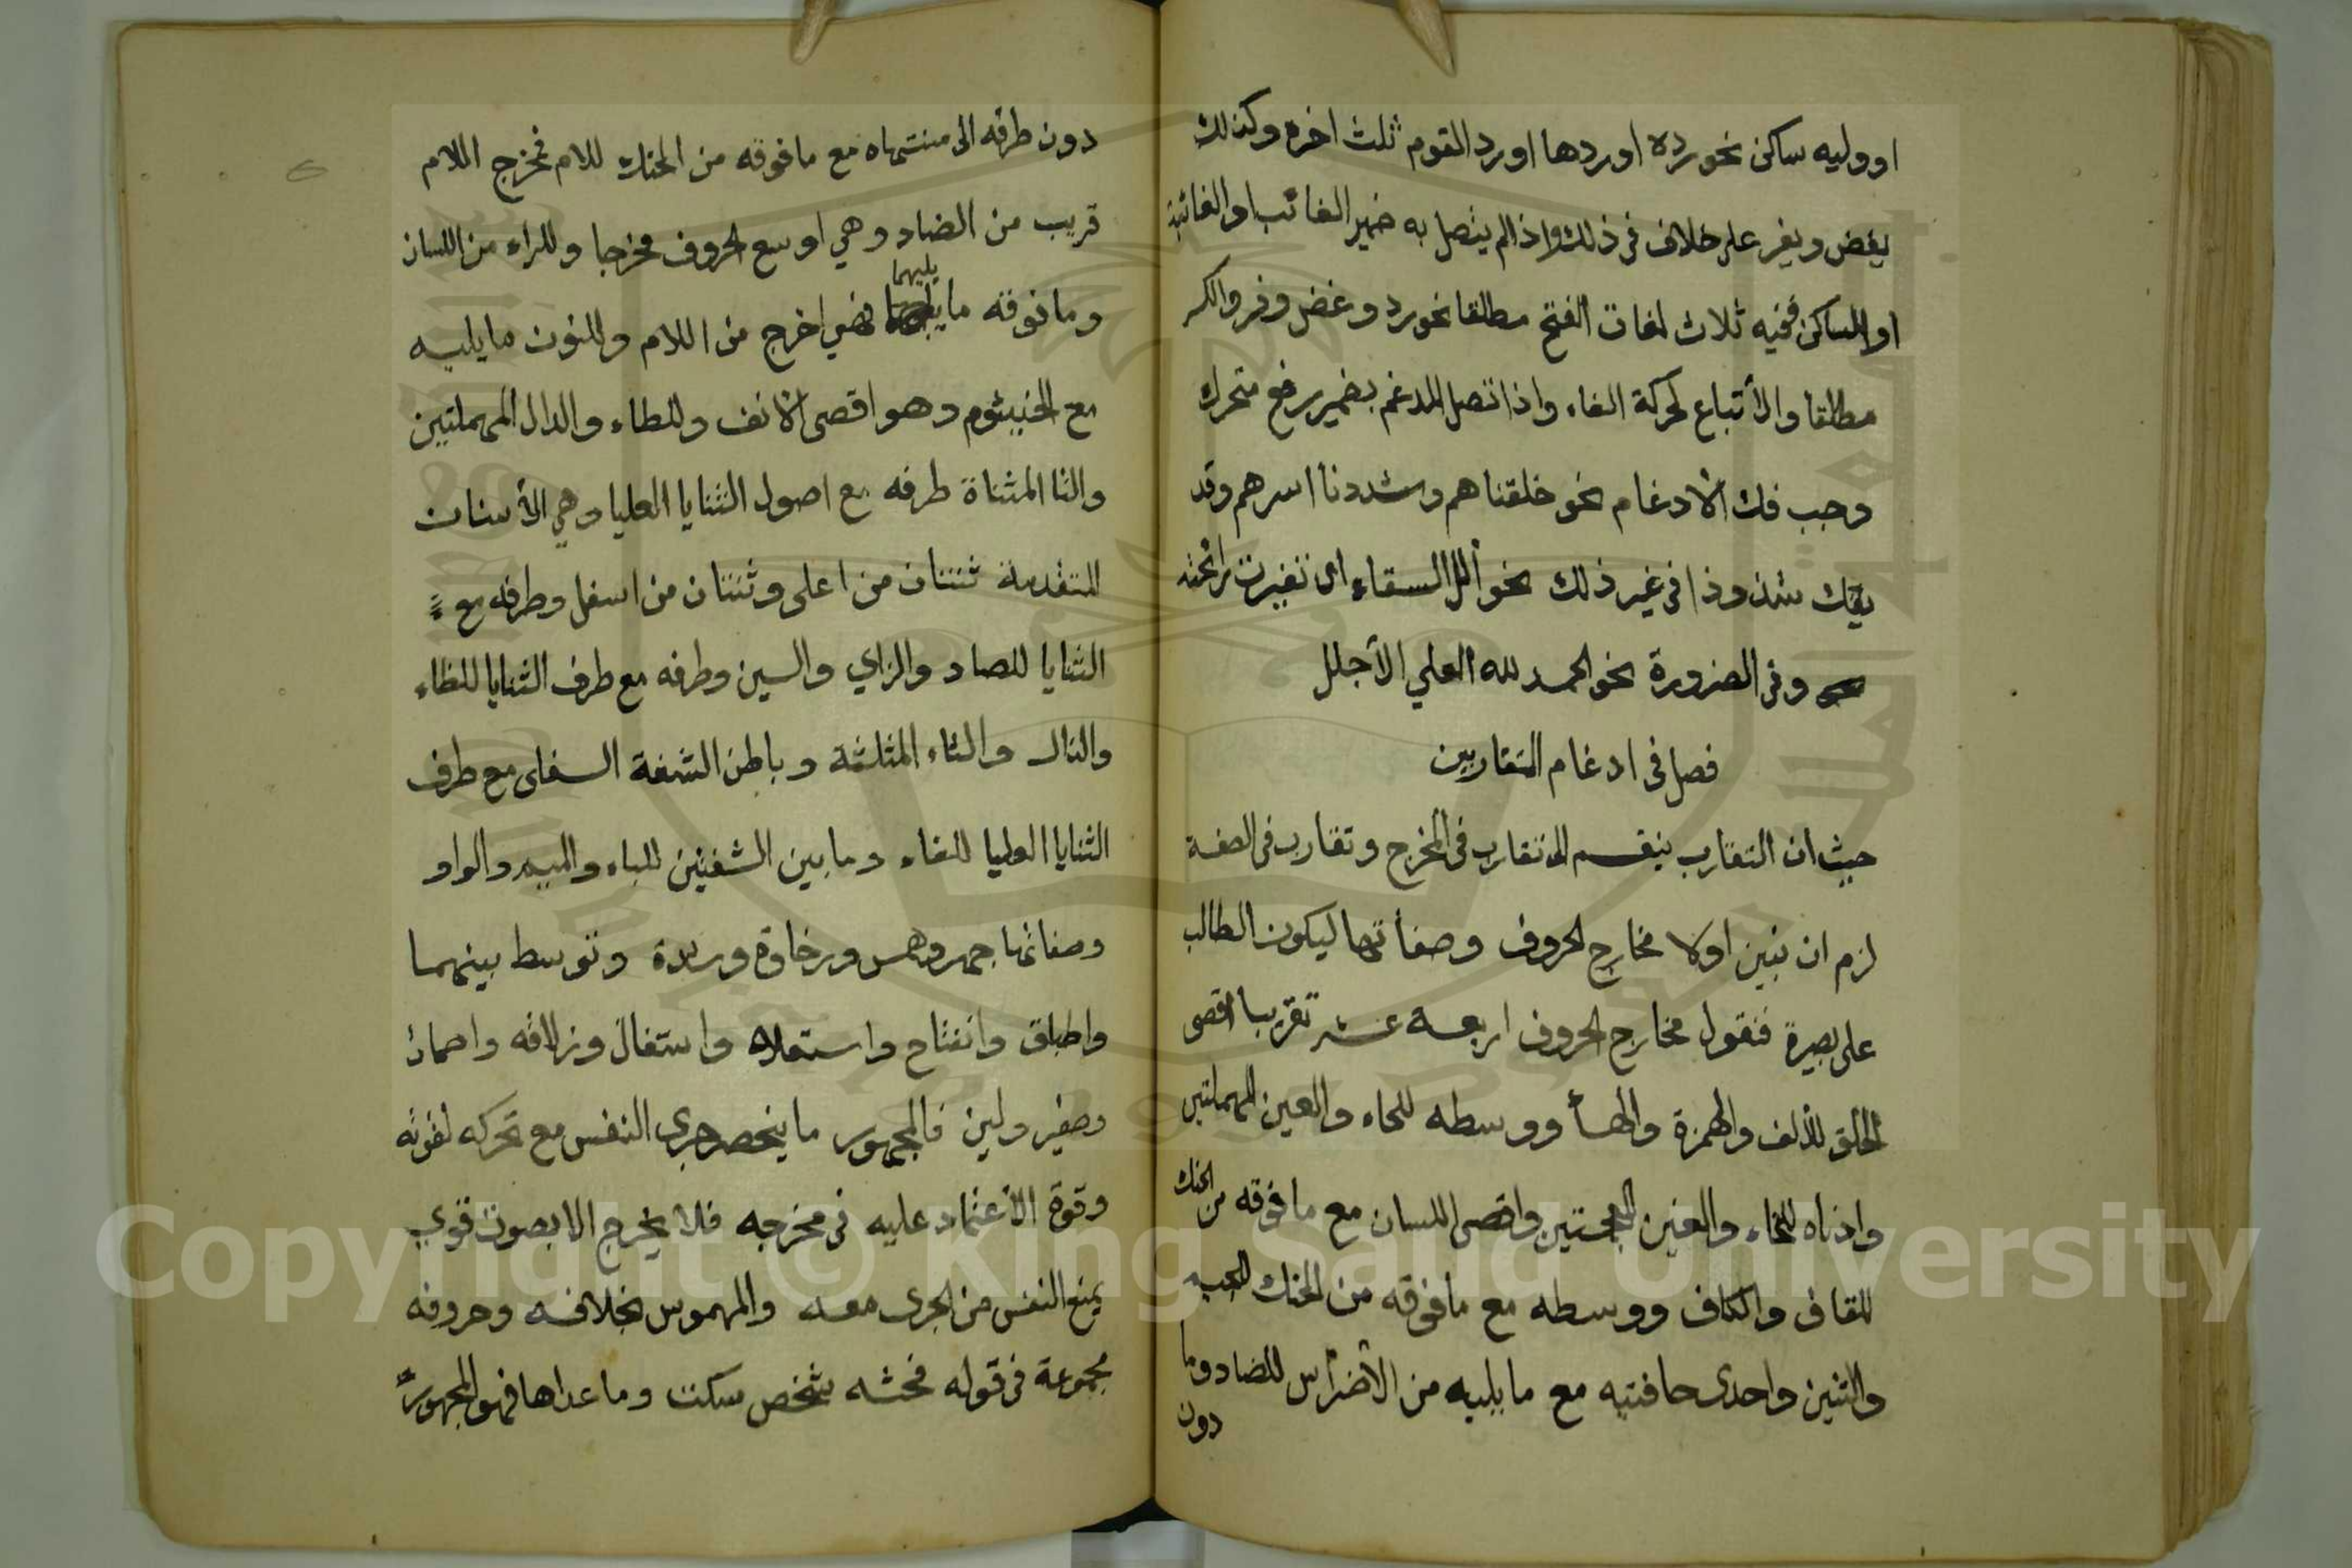 او وليه ساكن نحو رده اوردها اورد القوم ثلث اخره وكذلك
يغض ويفر على خلاف فى ذلك واذا لم يتصل به ضمير الغائب او الغائبة
او الساكن ففيه ثلاث لغات الفتح مطلقا نحو رد وغض وفر والكسر
مطلقا والأتباع لحركة الفاء واذا اتصل المدغم بضمير رفع متحرك
وجب فك الادغام نحو خلقناهم وشددنا اسرهم وقد
يفك شذوذا فى غير ذلك نحو ألل السقاء اى تغيرت رائحته
وفى الضرورة نحو الحمد لله العلي الأجلل
فصل فى ادغام المتقاربين
حيث ان التقارب ينقسم الى تقارب فى المخرج وتقارب فى الصفة
لزم ان نبين اولا مخارج الحروف وصفأتها ليكون الطالب
على بصيرة فنقول مخارج الحروف اربعة عشر تقريبا اقصى
الحلق للألف والهمزة والهأ ووسطه للحاء والعين المهملتين
وادناه للخاء والغين المعجمتين واقصى اللسان مع ما فوقه من الحنك
للقاف والكاف ووسطه مع ما فوقه من الحنك للجيم
والشين واحدى حافتيه مع ما يليه من الأضراس للضاد وما
دون
دون طرفه الى منتهاه مع ما فوقه من الحنك للام فمخرج اللام
قريب من الضاد وهي اوسع الحروف مخرجا وللراء من اللسان
وما فوقه ما يليهما فهي اخرج من اللام وللنون ما يليه
مع الخيشوم وهو اقصى الانف وللطاء والدال المهملتين
والتا المثناة طرفه مع اصول الثنايا العليا وهي الأسنان
المتقدمة ثنتان من اعلى وثنتان من اسفل وطرفه مع
الثنايا للصاد والزاي والسين وطرفه مع طرف الثنايا للظاء
والذال والثاء المثلثة وباطن الشفة السفلى مع طرف
الثنايا العليا للفاء وما بين الشفتين للباء والميم والواو
وصفاتها جهر وهمس ورخاوة وشدة وتوسط بينهما
واطباق وانفتاح واستعلاء واستفال وزلاقه واصمات
وصفير ولين فالمجهور ما ينحصر جرى النفس مع تحركه لقوته
وقوة الأعتماد عليه فى مخرجه فلا يخرج الا بصوت قوي
يمنع النفس من الجرى معه والمهموس بخلافه وحروفه
مجموعة فى قوله فحثه شخص سكت وما عداها فهو المجهور
Copyright © King Saud University